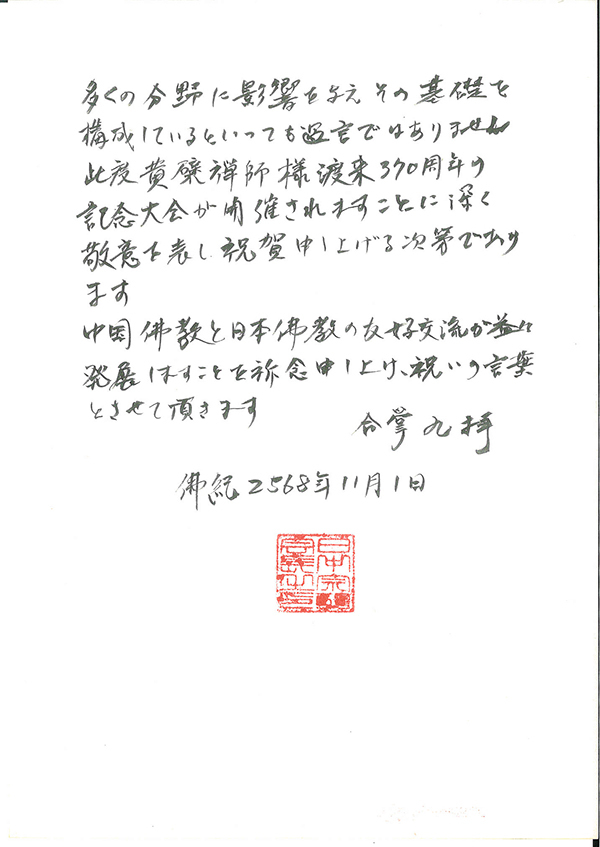 多くの分野に影響を与えその基礎を
構成しているといっても過言ではありません
此度黄檗禅師様渡来370周年の
記念大会が開催されますことに深く
敬意を表し祝賀申し上げる次第であり
ます
中国佛教と日本佛教の友好交流が益に
発展しますことを祢念申し上げ、祝いの言葉
とさせて頂きます
合掌九拝
佛紀2568年11月1日